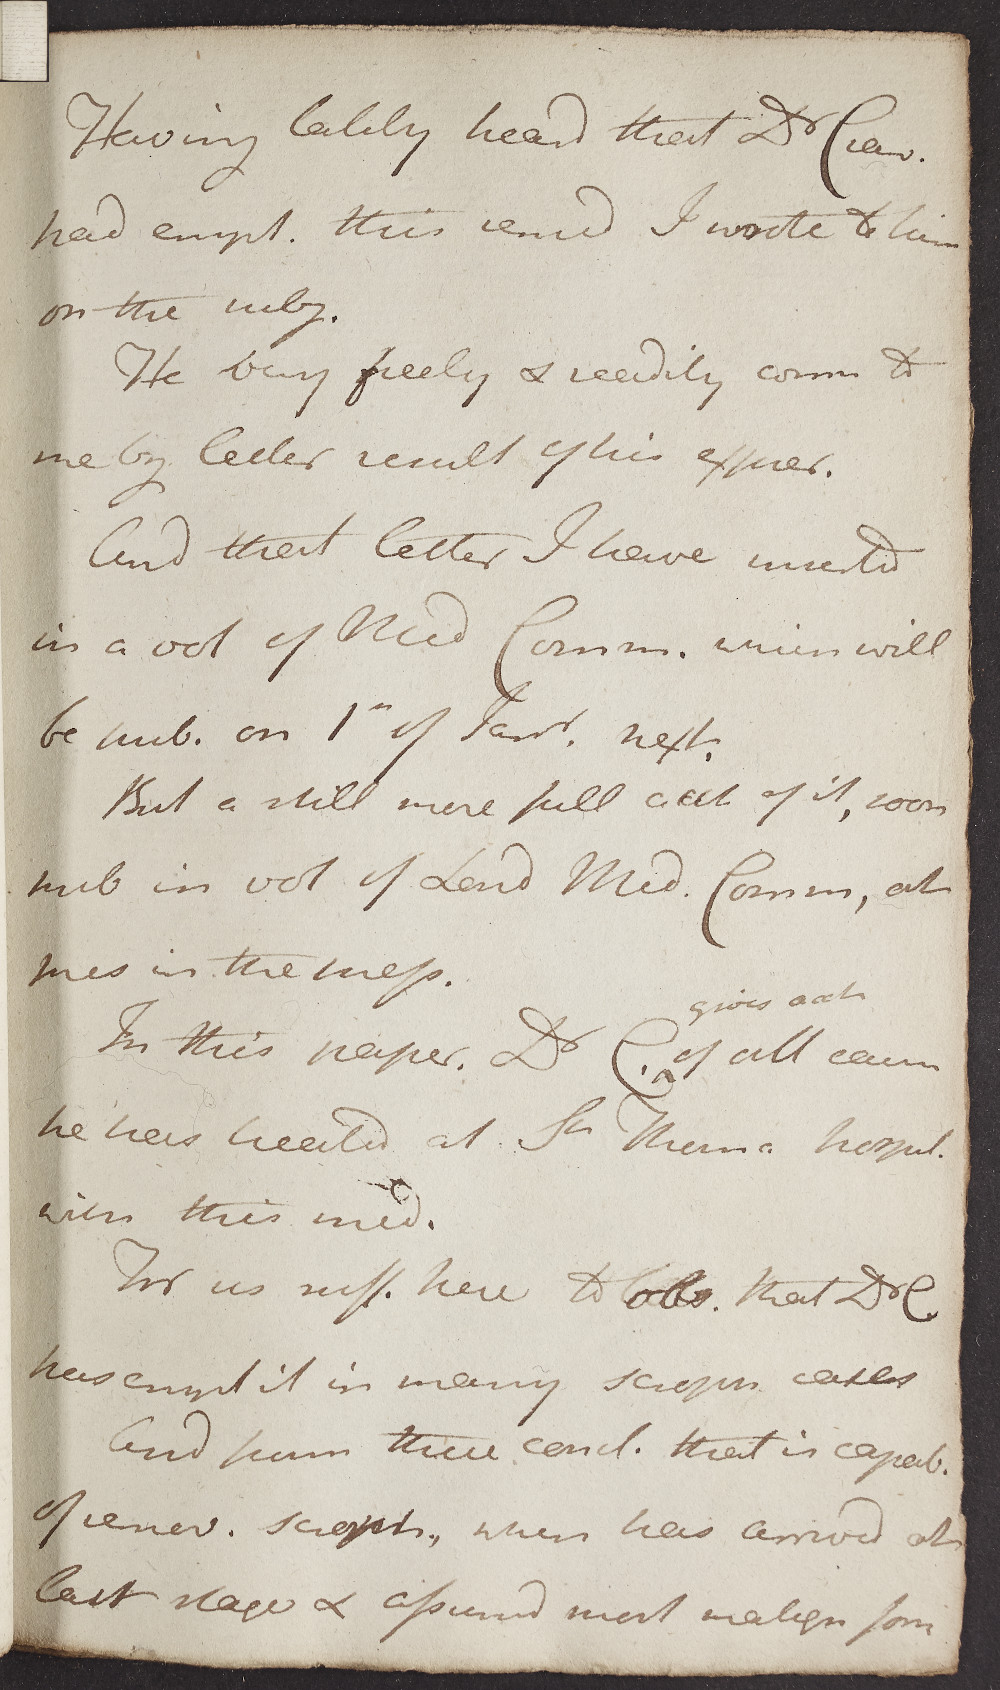 Having lately heard that Dr Craw.
had empl. this remed I wrote to him
on the subj.
He very freely & readily comm to
me by letter result of his exper.
And that letter I have inserted
in a vol of Med Comm. which will
be pub. on 1st of Janr. next.
But a still more full acct of it, soon
pub in vol of Lond Med. Comm, at
pres in the press.
In this paper. Dr C. gives acct of all
he has treated at St Thoma hospit.
with this med.
For us suff. here to obs. that Dr C.
has empl it in many scroph cases
And from these concl. that is capab.
of remov. scroph., when has arrived at
last stage & assumed most malign form